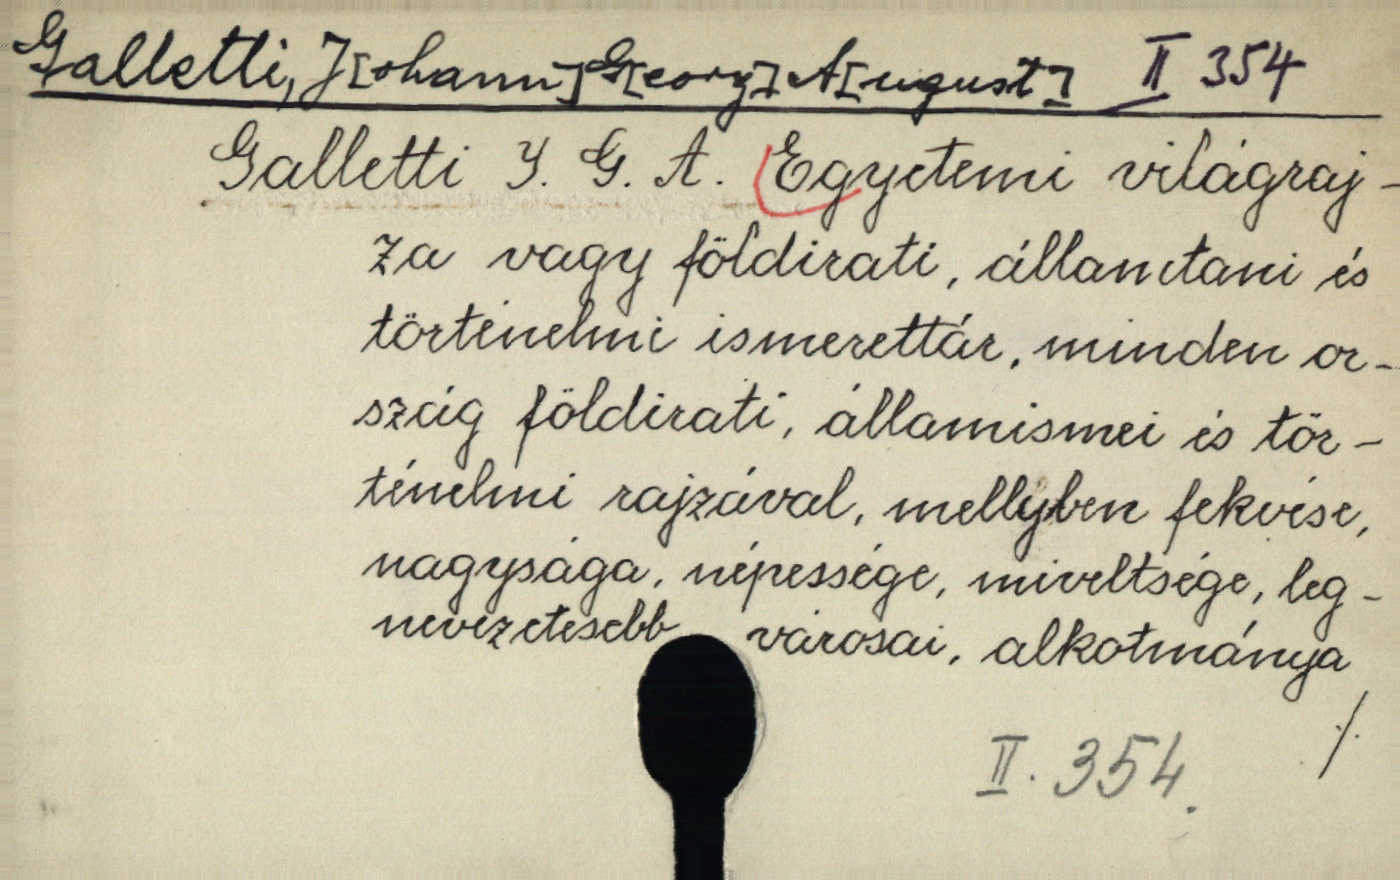 Galletti, J[ohann] G[eorg] A[ugust] II 354
Galletti J. G. A. Egyetemi világraj-
za vagy földirati, államtani és
történelmi ismerettár, minden or-
szág földirati, államismei és tör-
ténelmi rajzával, mellyben fekvése,
nagysága, népessége, miveltsége, leg-
nevezetesebb városai, alkotmánya
./.
II. 354.